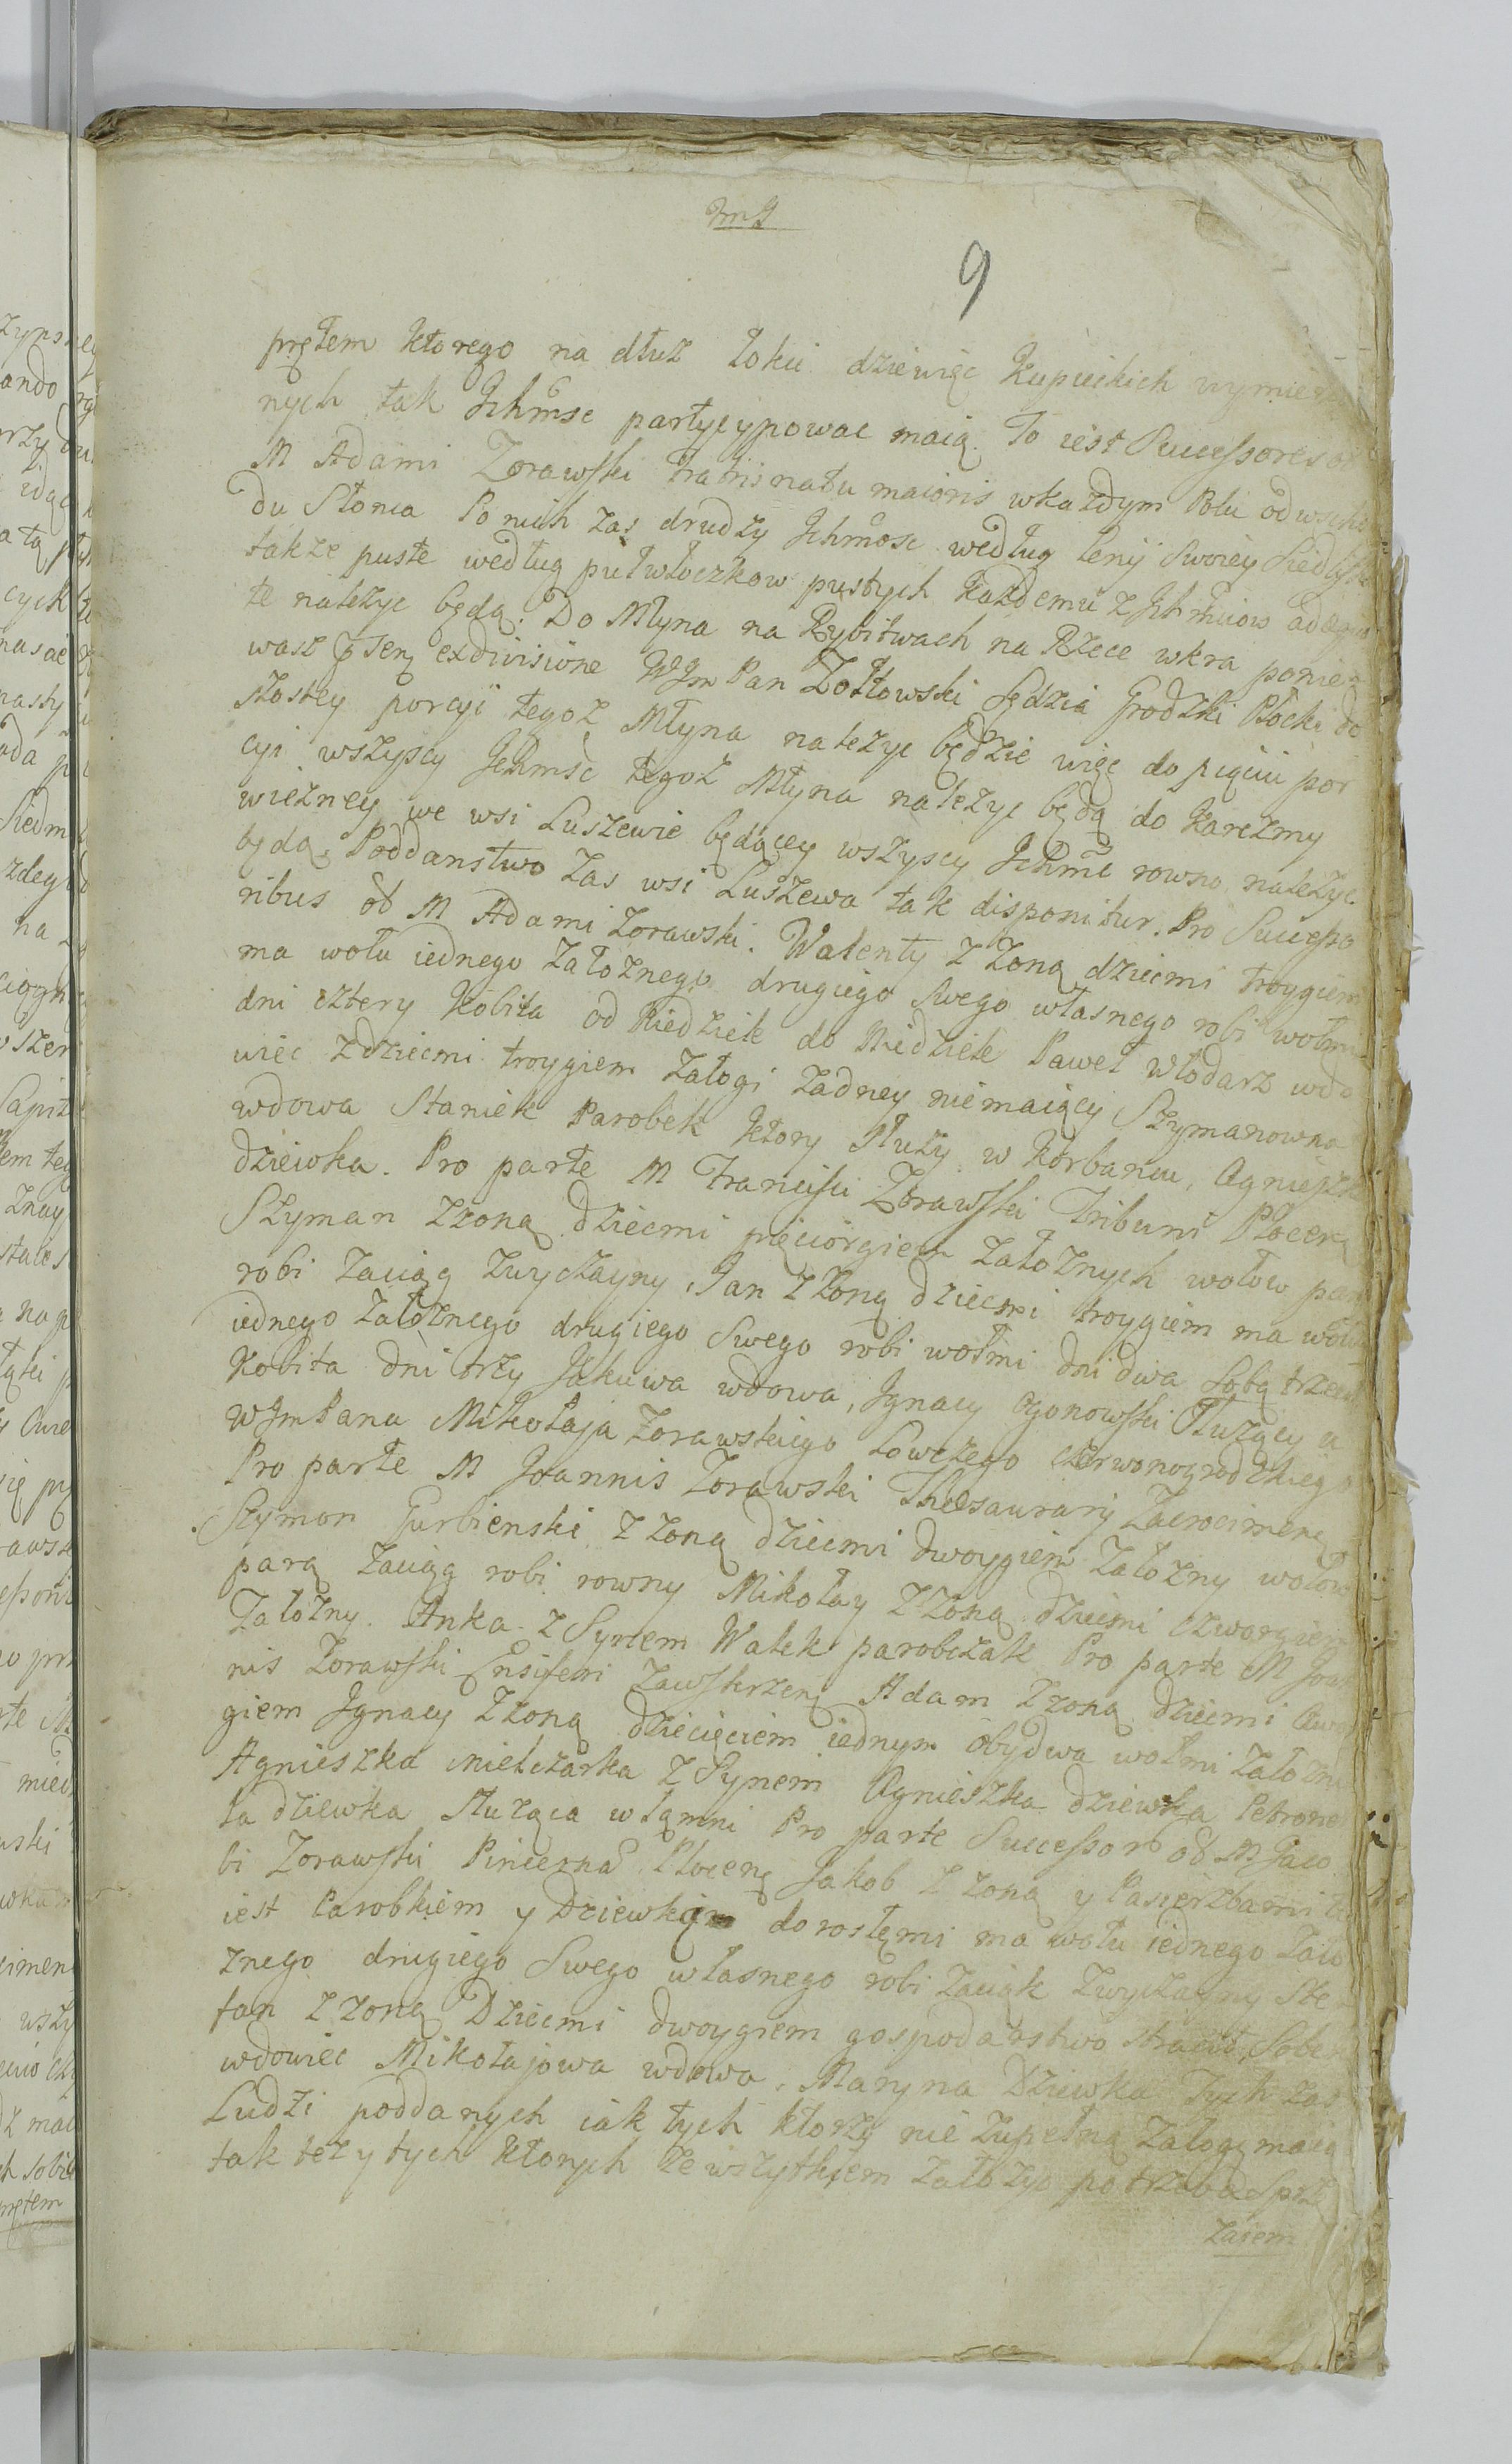 9
prętem ktorego na dłuz łokci dziewięc Kupieckich wymierzo
nych tak Jchmsc partycypowac maią. To iest Successores ol
M Adami Zorawski fratris natu maioris wkazdym Polu od wscho
du Słonca Po nich zas drudzy Jchmosc według lenij Swoiey Siedlisk
takze puste według pułwłoczkow pustych Kazdemu z Jchmciow
te nalezyc będą. Do Młyna na Rybitwach na Rzece wkra poniea
wasz Jm Pan Zołtowski Sędzia Grodzki Płocki do
szostey porcyi tegoz Młyna nalezyc będzie więc do pięciu por
cyi wszyscy Jchmsc tegoz Młyna nalezyc będą do Karczmy
wiezney we wsi Luszewie będącey wszyscy Jchmc rowno nalezyc
będą. Poddanstwo zas wsi Luszewa tak disponitur. Pro Successo
ribus ol M Adami Zorawski. Walenty z Zoną dziecmi troygiem
ma wołu iednego załoznego drugiego swego własnego robi wołmi
dni cztery Kobita od Niedziele do Niedziele Paweł Włodarz wdo
wiec z dziecmi troygiem załogi zadney niemaiący Szymanowna
wdowa Staniek Parobek ktory słuzy w Korbaniu, Agnieszka
dziewka. Pro parte M Francisci Zorawski Tribuni Płocen
Szyman z zoną dziecmi pięciorgiem załoznych wołow parą
robi zaciąg zwyczayny, Jan z Zoną dziecmi troygiem ma wołu
iednego załoznego drugiego Swego robi wołmi dni dwa Sobą trzeci
Kobita dni trzy Jakuwa wdowa, Jgnacy Ogonowski słuzący u
W Jm Pana Mikołaja Zorawskiego Łowczego czerwonogrodzkiego
Pro parte M Joannis Zorawski Thesaurarij Zacrocimen
Szymon Gurbienski z zoną dziecmi dwoygiem załozny wołow
parą zaciąg robi rowny Mikołay z zoną dziecmi czworgiem
załozny. Anka z Synem Walek parobczak Pro parte M Joan
nis Zorawski Ensiferi Zawskrzen Adam z zoną dziecmi dwoy
giem Jgnacy z zoną dziecięciem iednym obydwa wołmi załozni
Agnieszka mielczarka z Synem Agnieszka dziewka Petrone
la dziewka słuząca Pro parte Successor ol M Jaco
bi Zorawski Pincerna Płocen Jakob z zoną y Pasierzbami
iest Parobkiem y Dziewką dorosłemi ma wołu iednego zało
znego drugiego Swego własnego robi zaciąk zwyczayny Ste
fan z zoną Dziecmi dwoygiem gospodarstwo stracił
wdowiec Mikołajowa wdowa, Maryna Dziewka Tych zas
Ludzi poddanych iak tych ktorzy nie zupełną załogę maią
tak tez y tych ktorych ze wszytkiem załozyc potrzeba Sprzę
zaiem